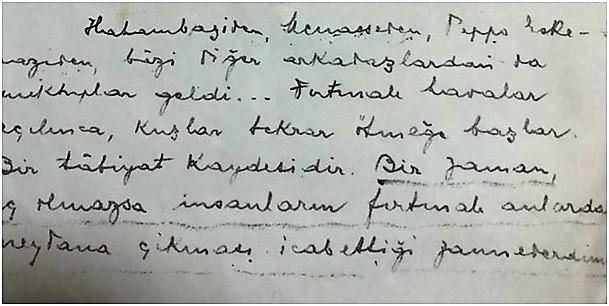 Hahambaşıdan, Menasseden, Peppo Eske-
naziden, bâzi diğer arkadaşlardan da
mektuplar geldi... Fırtınalı havalar
açılınca, kuşlar tekrar ötmeğe başlar.
Bir tâbiyat kaydesidir. Bir zaman,
hiç olmazsa insanların fırtınalı anlarda
meydana çıkması icabettiği zannederdim